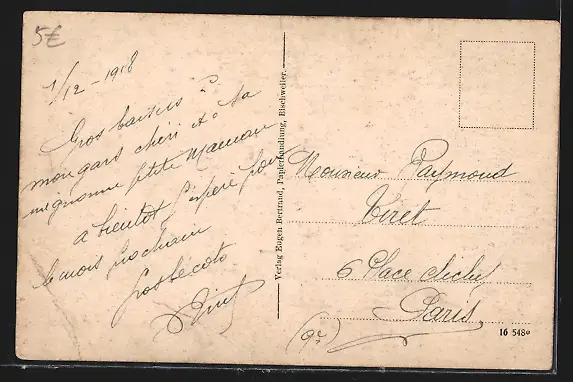 5€
1/12 - 1918
Gros baisers à
mon gars chéri et à sa
mignonne ptite Maman
a bientôt j'espère pour
le mois prochain
Verlag Eugen Bertrand, Papierhandlung, Bischweiler.
Monsieur Raymond
Tiret
6 Place Clichy
Paris
(9e)
16 548e